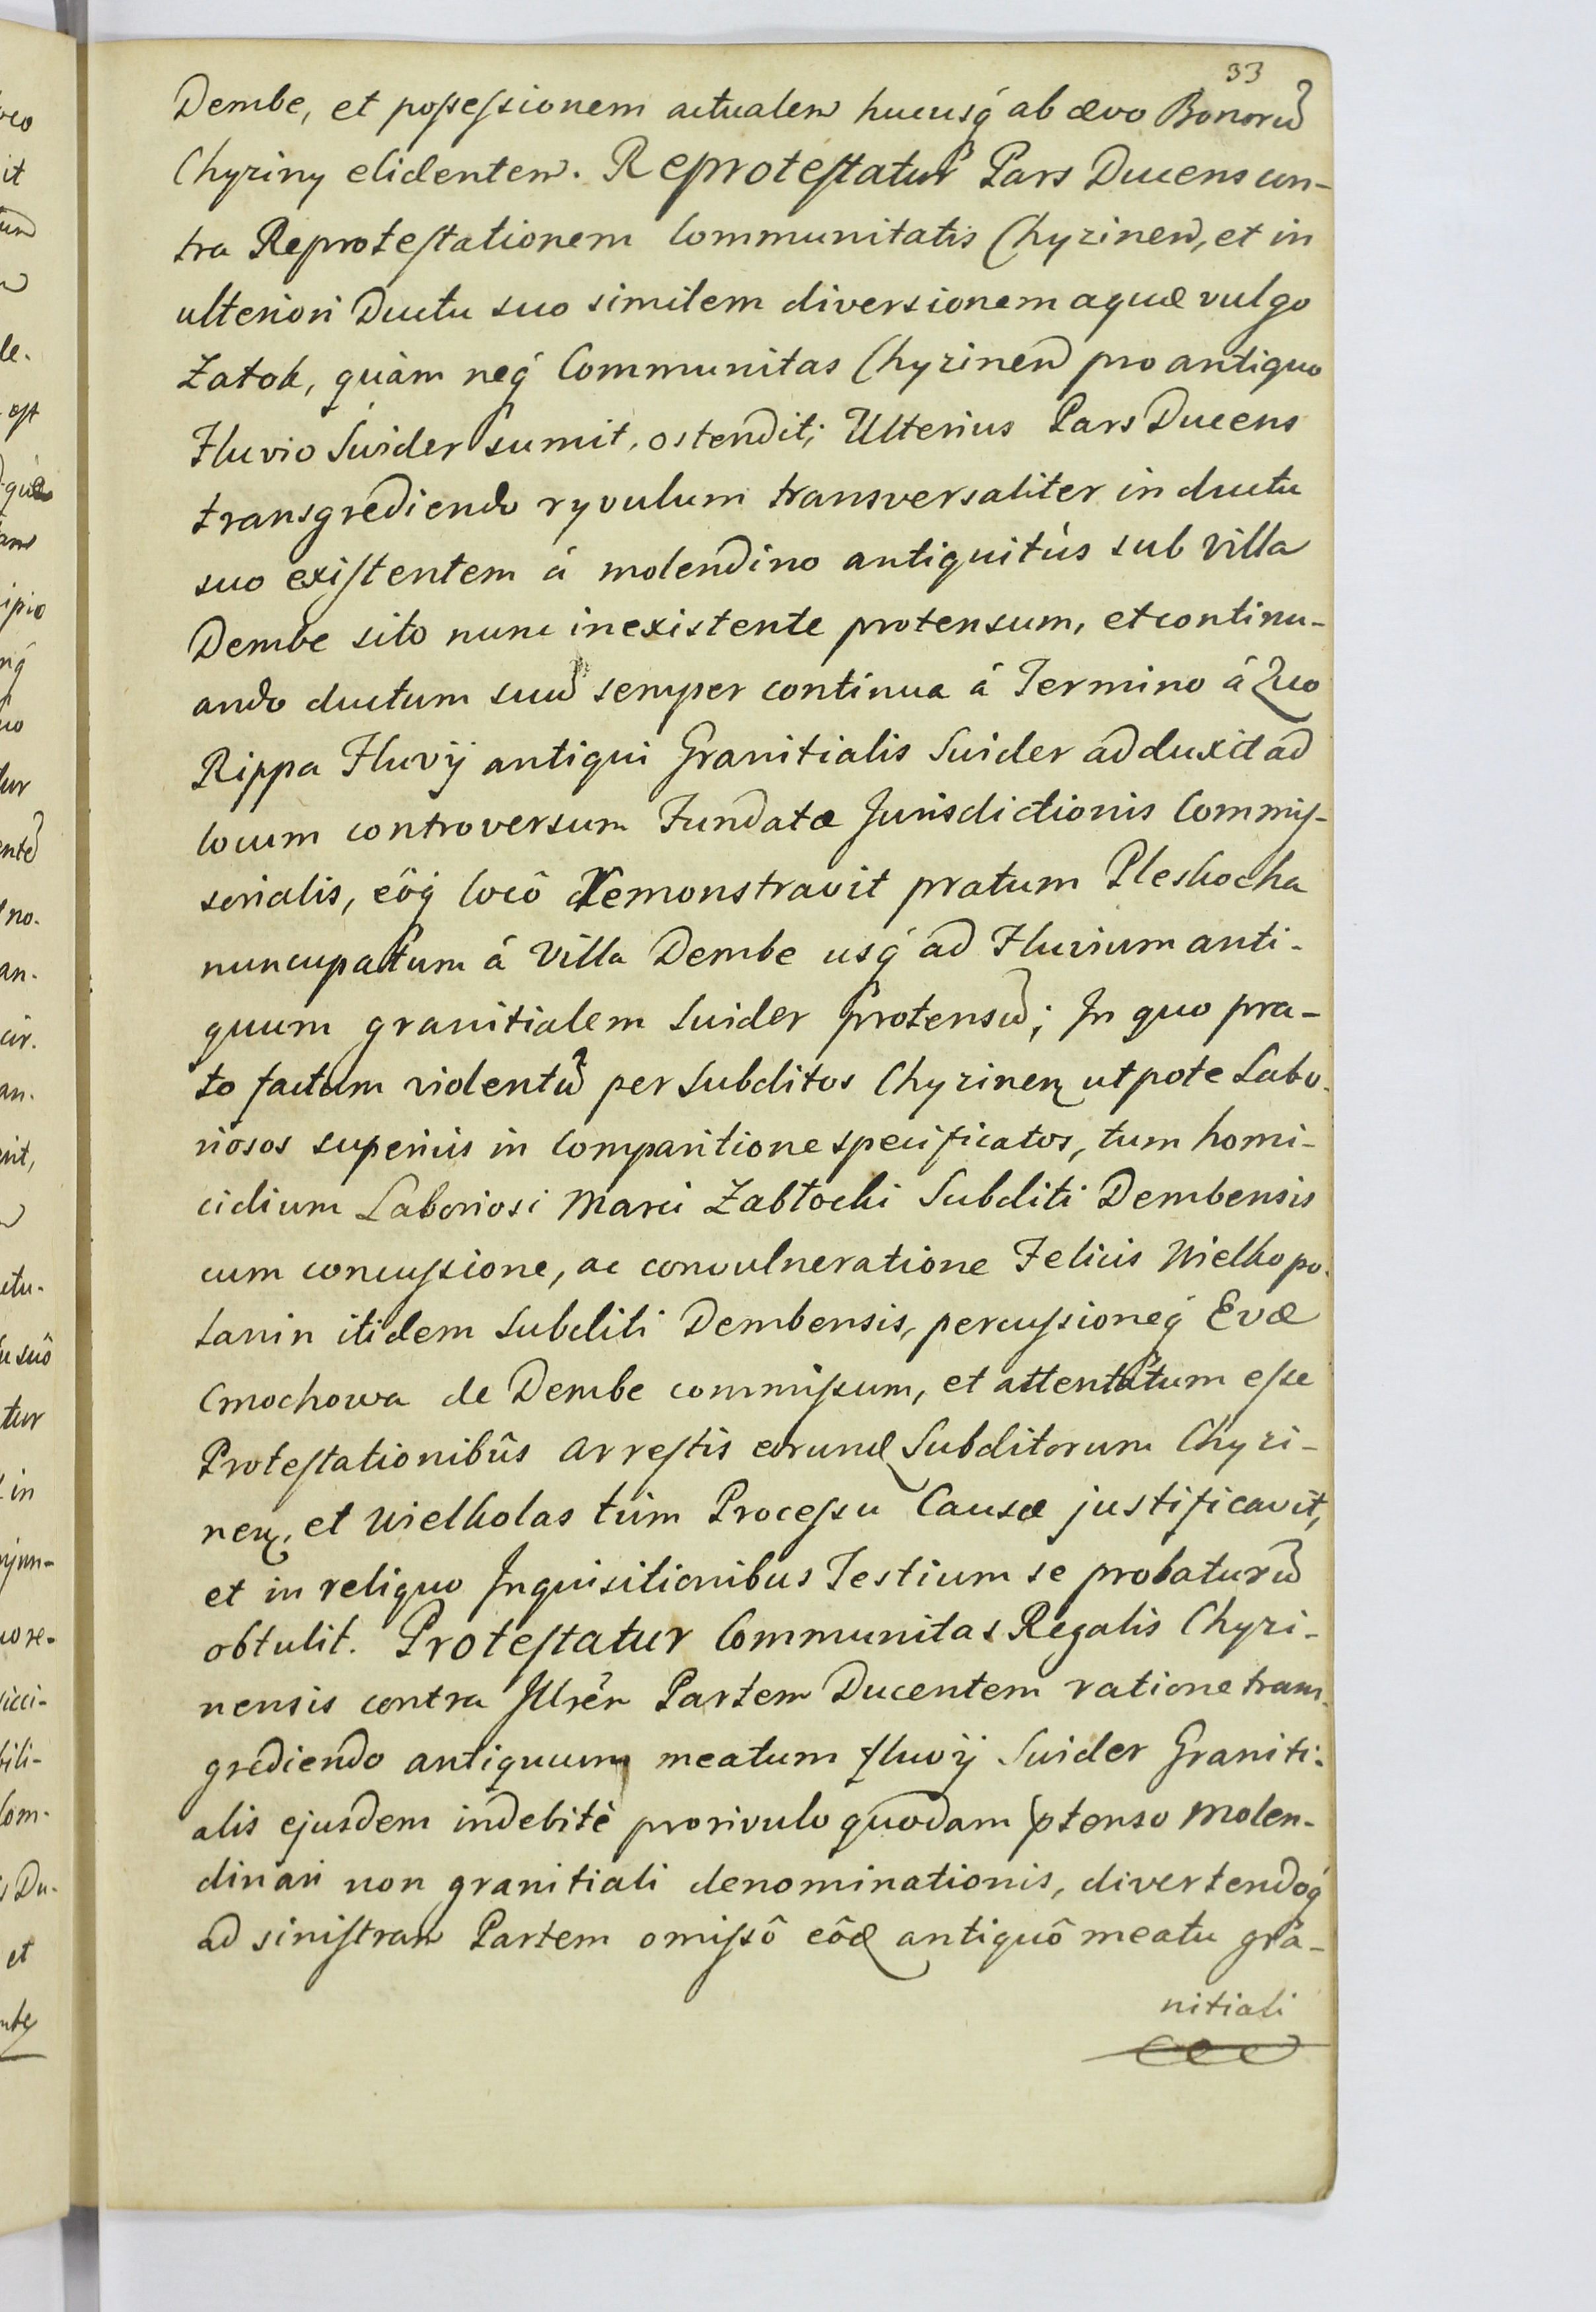 33
Dembe, et poſseſsionem actualem hucusq́ ab ævo Bonorū
Chyziny elidentem. Reproteſtatur Pars Ducens con-
tra Reproteſtationem Communitatis Chyzinen, et in
ulteriori Ductu suo similem diversionem aquæ vulgo
Zatok, quàm neq́ Communitas Chyzinen pro antiquo
Fluvio Swider sumit, ostendit; Ulterius Pars Ducens
transgrediendo ryvulum transversaliter in ductu
suo exiſtentem á molendino antiquitùs sub villa
Dembe sito nunc inexistente protensum, et continu-
ando ductum suū semper continua á Termino á Quo
Rippa Fluvÿ antiqui Granitialis Swider adduxit ad
locum controversum Fundatæ Jurisdictionis Commiſ-
sorialis, eôq́ locô demonstravit pratum Pleskocha
nuncupatum á Villa Dembe usq́ ad Fluvium anti-
quum granitialem Swider protensū; In quo pra-
to factam violentiā per Subditos Chyzinen utpote Labo-
riosos superius in Comparitione specificatos, tum homi-
cidium Laboriosi Marci Zabłocki Subditi Dembensis
cum concuſsione, ac convulneratione Felicis Wielkopo-
lanin itidem Subditi Dembensis, percuſsioneq́ Evæ
Cmochowa de Dembe commiſsum, et attentatum eſse
Proteſtationibûs Arreſtis eorund Subditorum Chyzi-
nen, et Wielkolas tùm Proceſsu Causæ justificavit,
et in reliquo Inquisitionibus Testium se probaturū
obtulit. Proteſtatur Communitas Regalis Chyzi-
nensis contra Illrēn Partem Ducentem ratione trans-
grediendo antiquum meatum fluvÿ Swider Graniti-
alis ejusdem indebitè pro rivulo quodam ptenso Molen-
dinari non granitiali denominationis, divertendoq́
ad siniſtram Partem omiſsô eôd antiquô meatu gra-
nitiali